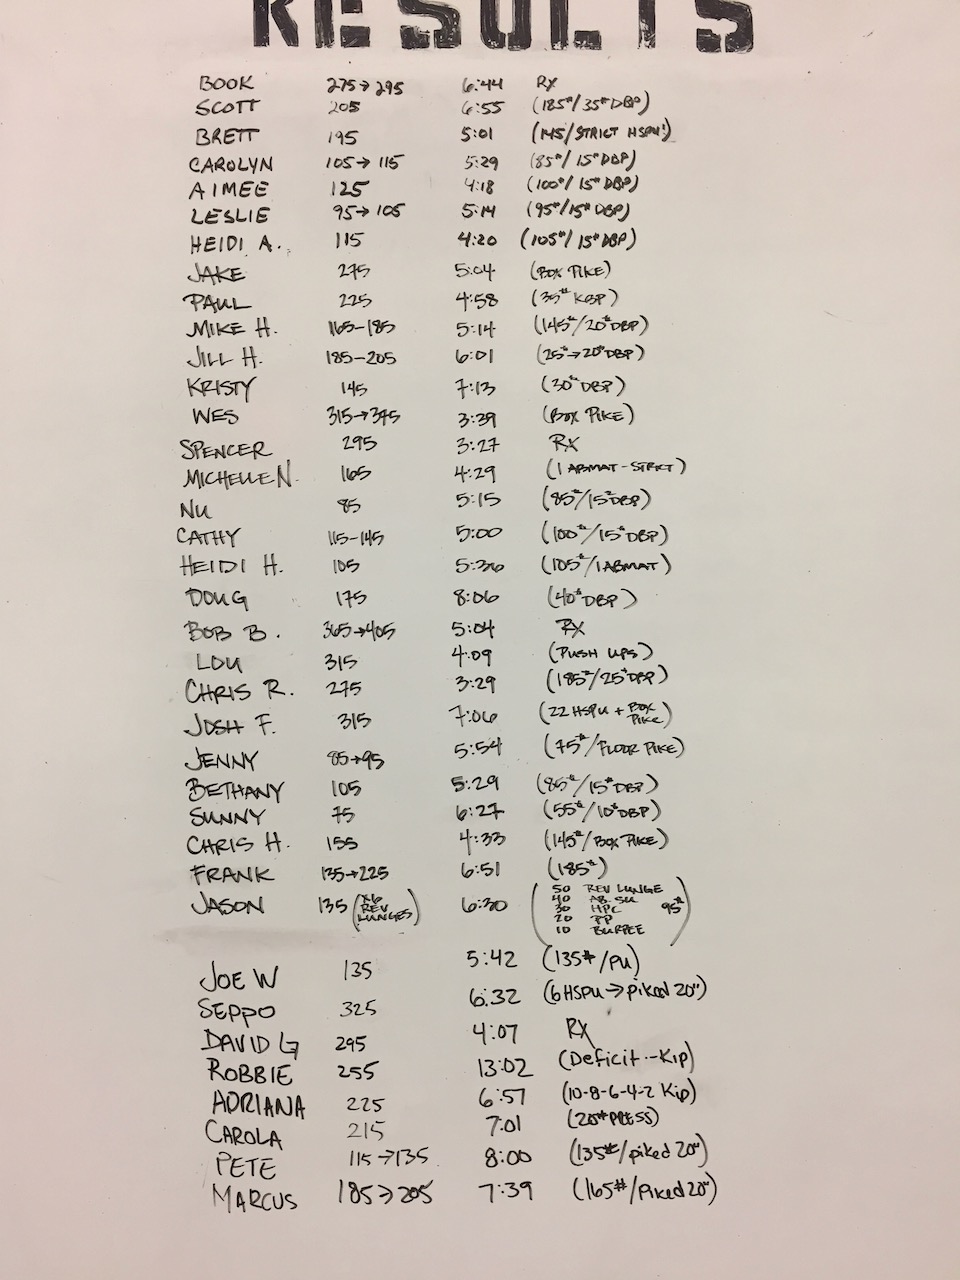 RESULTS
BOOK 275→295 6:44 RX
SCOTT 205 6:55 (185#/35#DBP)
BRETT 195 5:01 (145/STRICT HSPU!)
CAROLYN 105→115 5:29 (85#/15#DBP)
AIMEE 125 4:18 (100#/15#DBP)
LESLIE 95→105 5:14 (95#/15#DBP)
HEIDI A. 115 4:20 (105#/15#DBP)
JAKE 275 5:04 (BOX PIKE)
PAUL 225 4:58 (35#KBP)
MIKE H. 165-185 5:14 (145#/20#DBP)
JILL H. 185-205 6:01 (25#→20#DBP)
KRISTY 145 7:13 (30#DBP)
WES 315→375 3:39 (BOX PIKE)
SPENCER 295 3:27 RX
MICHELLE N. 165 4:29 (1 ABMAT-STRICT)
NU 85 5:15 (85#/15#DBP)
CATHY 115-145 5:00 (100#/15#DBP)
HEIDI H. 105 5:36 (105#/1ABMAT)
DOUG 175 8:06 (40#DBP)
BOB B. 365→405 5:04 RX
LOU 315 4:09 (PUSH UPS)
CHRIS R. 275 3:29 (185#/25#DBP)
JOSH F. 315 7:06 (22 HSPU + BOX PIKE)
JENNY 85→95 5:54 (75#/FLOOR PIKE)
BETHANY 105 5:29 (85#/15#DBP)
SUNNY 75 6:27 (55#/10#DBP)
CHRIS H. 155 4:33 (145#/BOX PIKE)
FRANK 135→225 6:51 (185#)
JASON 135 (X6 REV LUNGES) 6:30 (50 REV LUNGE
40 AB. SU
30 HPC 95#
20 PP
10 BURPEE)
JOE W 135 5:42 (135#/PU)
SEPPO 325 6:32 (6HSPU→piked 20")
DAVID G 295 4:07 RX
ROBBIE 255 13:02 (Deficit--Kip)
ADRIANA 225 6:57 (10-8-6-4-2 Kip)
CAROLA 215 7:01 (20#PRESS)
PETE 115→135 8:00 (135#/piked 20")
MARCUS 185→205 7:39 (165#/Piked 20")